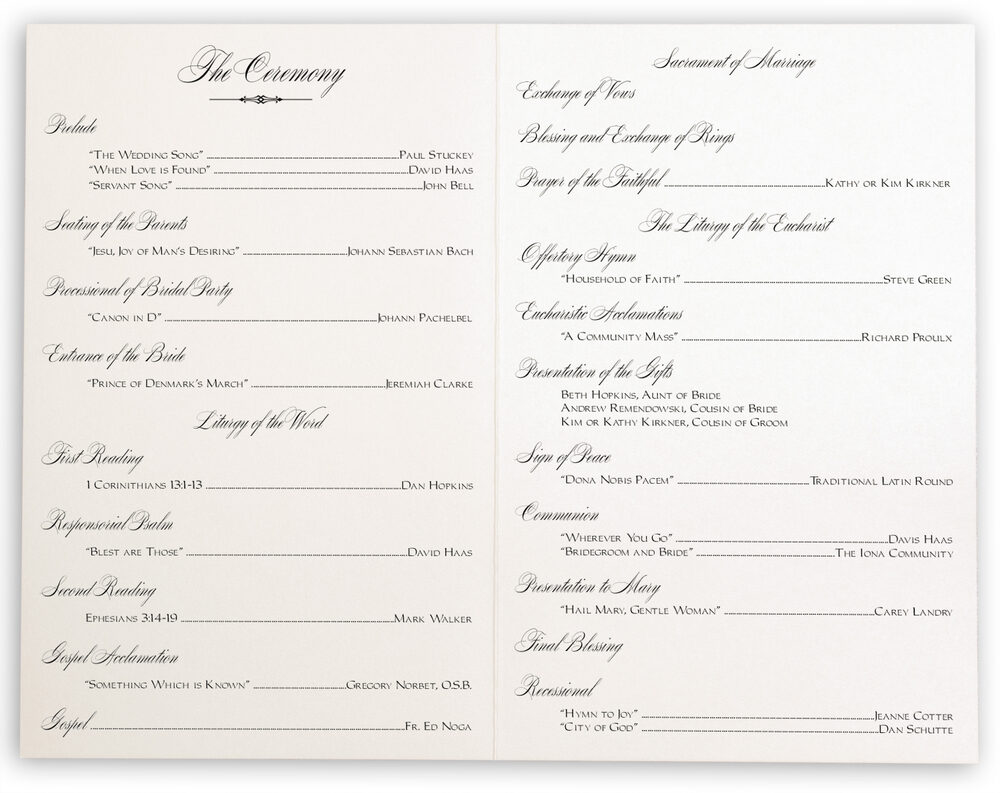 The Ceremony
Prelude
"The Wedding Song" Paul Stuckey
"When Love is Found" David Haas
"Servant Song" John Bell
Seating of the Parents
"Jesu, Joy of Man's Desiring" Johann Sebastian Bach
Processional of Bridal Party
"Canon in D" Johann Pachelbel
Entrance of the Bride
"Prince of Denmark's March" Jeremiah Clarke
Liturgy of the Word
First Reading
1 Corinthians 13:1-13 Dan Hopkins
Responsorial Psalm
"Blest are Those" David Haas
Second Reading
Ephesians 3:14-19 Mark Walker
Gospel Acclamation
"Something Which is Known" Gregory Norbet, O.S.B.
Gospel Fr. Ed Noga
Sacrament of Marriage
Exchange of Vows
Blessing and Exchange of Rings
Prayer of the Faithful Kathy or Kim Kirkner
The Liturgy of the Eucharist
Offertory Hymn
"Household of Faith" Steve Green
Eucharistic Acclamations
"A Community Mass" Richard Proulx
Presentation of the Gifts
Beth Hopkins, Aunt of Bride
Andrew Remendowski, Cousin of Bride
Kim or Kathy Kirkner, Cousin of Groom
Sign of Peace
"Dona Nobis Pacem" Traditional Latin Round
Communion
"Wherever You Go" Davis Haas
"Bridegroom and Bride" The Iona Community
Presentation to Mary
"Hail Mary, Gentle Woman" Carey Landry
Final Blessing
Recessional
"Hymn to Joy" Jeanne Cotter
"City of God" Dan Schutte